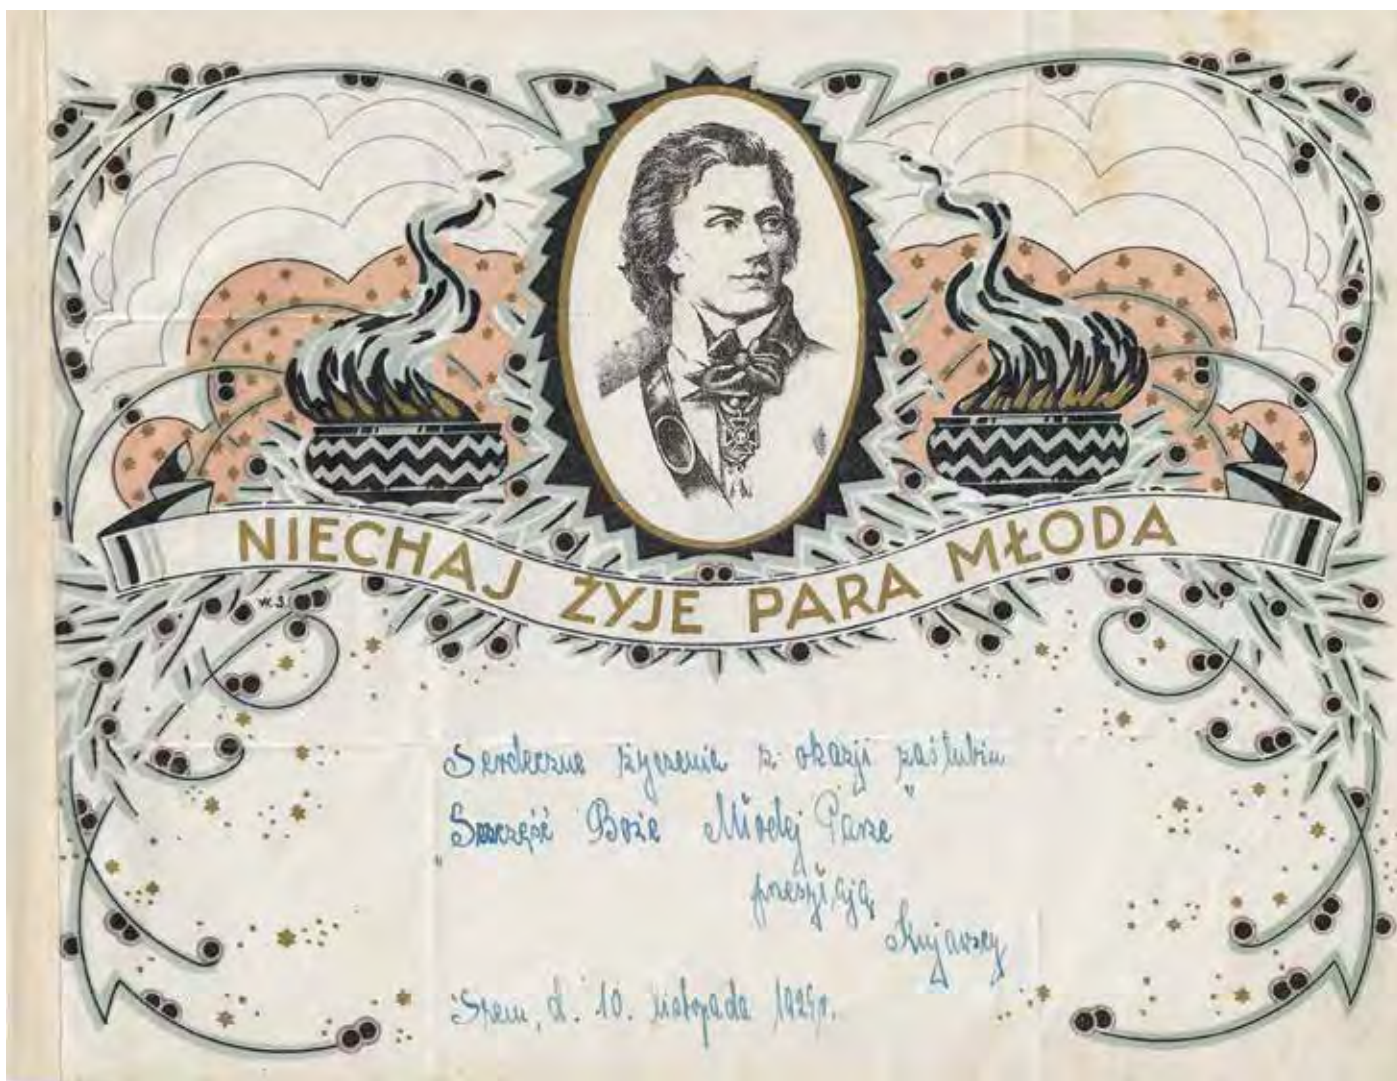 NIECHAJ ŻYJE PARA MŁODA
W.J.
Serdeczne życzenia z okazji zaślubin
"Szczęść Boże Młodej Parze"
przesyłają
Kujawscy
Śrem, d. 10. listopada